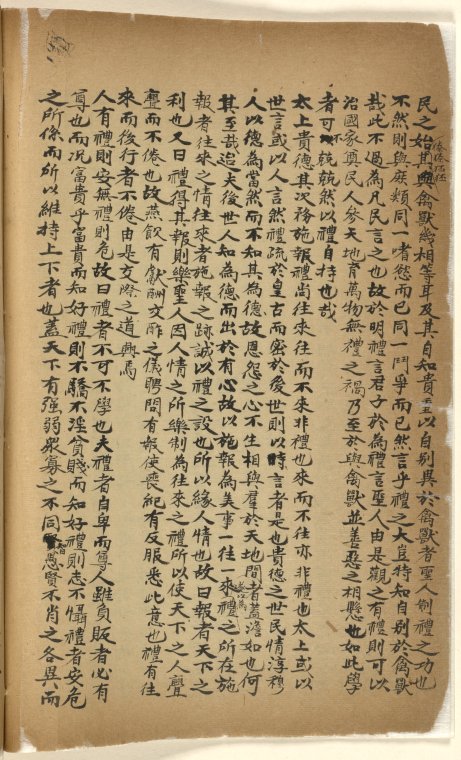 民之始其與禽獸為相等耳及其自知貴至以自别異於禽獸者聖人制禮之功也
不然則與麋類同一嗜慾而已同一鬥爭而已然言乎禮之大豈特知自别於禽獸
哉此不過為凡民言之也故於明禮言君子於為禮言聖人由是觀之有禮則可以
治國家奠民人參天地育萬物無禮之禍乃至於與禽獸並善惡之相懸也如此學
者可不兢兢然以禮自持也哉
太上貴德其次務施報禮尚往來往而不來非禮也來而不往亦非禮也太上或以
世言或以人言然禮疏於皇古而密於後世則以時言者是也貴德之世民情淳穆
人以德為當然而不知其為德故恩怨之心不生相與羣於天地間者蓋澹如也何
其至哉迨夫後世人知為德而出於有心故以施報為美事一往一來禮之所在施
報者往來之情往來者施報之跡誠以禮之設也所以緣人情也故曰報者天下之
利也又曰禮得其報則樂聖人因人情之所樂制為往來之禮所以使天下之人亹
亹而不倦也故燕飲有獻酬交酢之儀聘問有報使喪紀有反服悉此意也禮有往
來而後行者不倦由是交際之道興焉
人有禮則安無禮則危故曰禮者不可不學也夫禮者自卑而尊人雖負販者必有
尊也而況富貴乎富貴而知好禮則不驕不淫貧賤而知好禮則志不懾禮者安危
之所係而所以維持上下者也蓋天下有強弱衆寡之不同智愚賢不肖之各異而